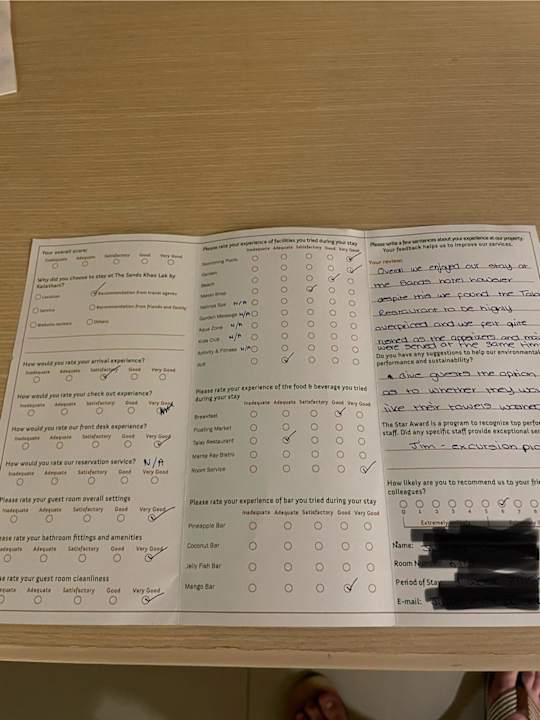 Your overall score:
Inadequate Adequate Satisfactory Good Very Good
Why did you choose to stay at The Sands Khao Lak by Katathani?
Location
Recommendation from travel agents
Service
Recommendation from friends and family
Website reviews
Others
How would you rate your arrival experience?
Inadequate Adequate Satisfactory Good Very Good
How would you rate your check out experience?
Inadequate Adequate Satisfactory Good Very Good
How would you rate our front desk experience?
Inadequate Adequate Satisfactory Good Very Good
How would you rate our reservation service? N/A
Inadequate Adequate Satisfactory Good Very Good
Please rate your guest room overall settings
Inadequate Adequate Satisfactory Good Very Good
ase rate your bathroom fittings and amenities
adequate Adequate Satisfactory Good Very Good
se rate your guest room cleanliness
equate Adequate Satisfactory Good Very Good
Please rate your experience of facilities you tried during your stay
Inadequate Adequate Satisfactory Good Very Good
Swimming Pools
Garden
Beach
Mason Shop
Spa N/A
Garden Massage N/A
Aqua Zone N/A
Kids Club N/A
Activity & Fitness N/A
Wifi
Please rate your experience of the food & beverage you tried during your stay
Inadequate Adequate Satisfactory Good Very Good
Breakfast
Floating Market
Talay Restaurant
Marke Ray Bistro
Room Service
Please rate your experience of bar you tried during your stay
Inadequate Adequate Satisfactory Good Very Good
Pineapple Bar
Coconut Bar
Jelly Fish Bar
Mango Bar
Please write a few sentences about your experience at our property.
Your feedback helps us to improve our services.
Your review:
Overall we enjoyed our stay at
the Sands hotel however
despite this we found the Tala
Restaurant to be highly
overpriced and we felt quite
rushed as the appetizers and mai
were served at the same tim
Do you have any suggestions to help our environmental
performance and sustainability?
Give guests the option
as to whether they wou
like their towels washed
The Star Award is a program to recognize top perfo
staff. Did any specific staff provide exceptional ser
Jim - excursion pla
How likely are you to recommend us to your frie
colleagues?
0 1 2 3 4 5 6 7 8
Extremely
Name:
Room N
Period of Stay
E-mail: